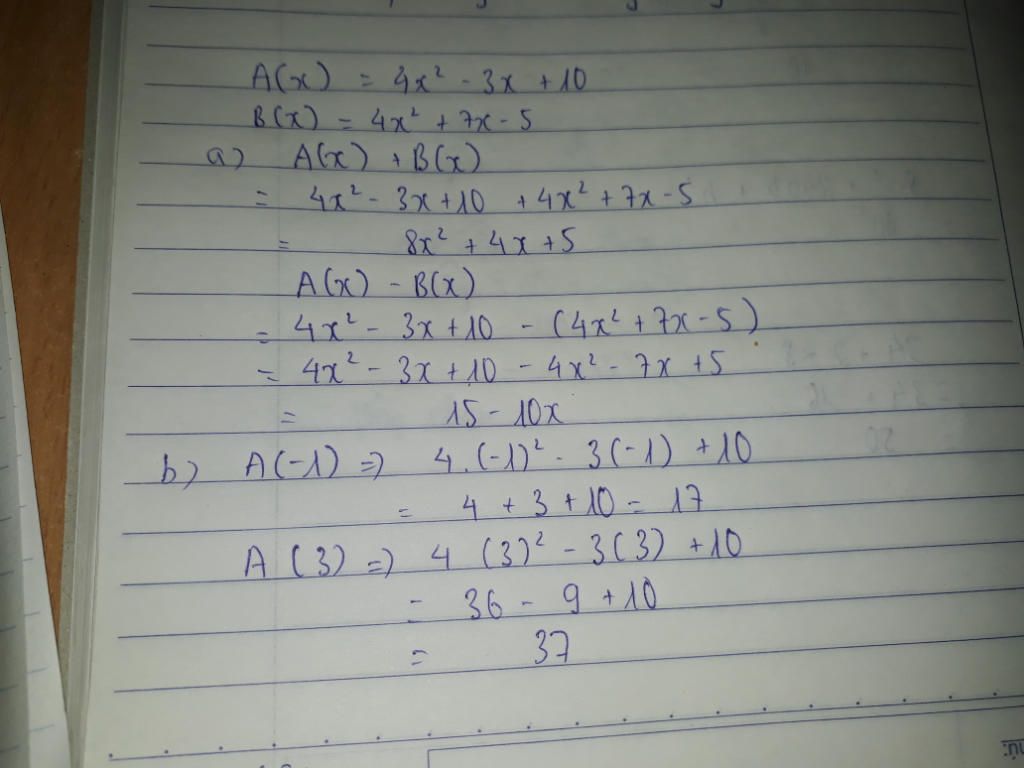 A(x) = 4x² - 3x + 10
B(x) = 4x² + 7x - 5
a) A(x) + B(x)
= 4x² - 3x + 10 + 4x² + 7x - 5
= 8x² + 4x + 5
A(x) - B(x)
= 4x² - 3x + 10 - (4x² + 7x - 5)
= 4x² - 3x + 10 - 4x² - 7x + 5
= 15 - 10x
b) A(-1) => 4.(-1)² - 3(-1) + 10
= 4 + 3 + 10 = 17
A (3) => 4 (3)² - 3(3) + 10
= 36 - 9 + 10
= 37